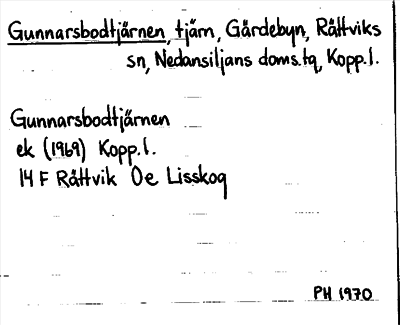 Gunnarsbodtjärnen, tjärn, Gärdebyn, Rättviks
sn, Nedansiljans doms.tq, Kopp.l.
Gunnarsbodtjärnen
ek (1969) Kopp.l.
14 F Rättvik Oe Lisskog
PH 1970